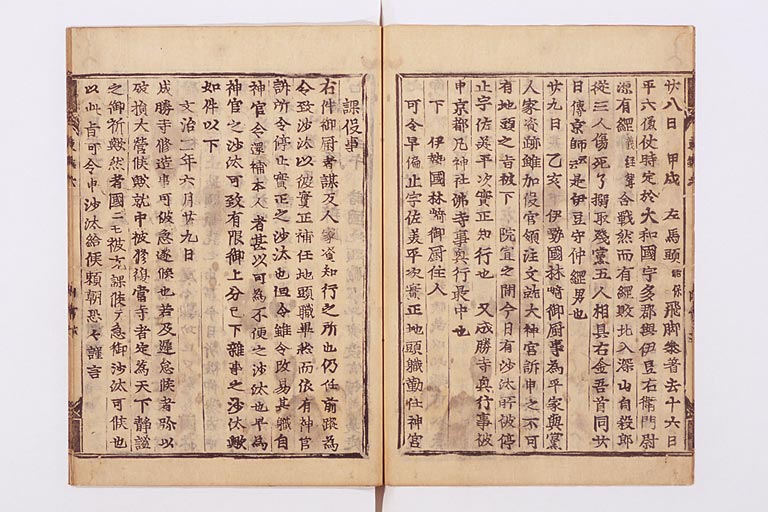 廿八日 甲戌 左馬頭能保飛脚参著去十六日
平六傔仗時定於大和國宇多郡與伊豆右衛門尉
源有綱義経聟合戦然而有綱敗北入深山自殺郎
従三人傷死了搦取残黨五人相具右金吾首同廿
日傳京師云云是伊豆守仲綱男也
廿九日 乙亥 伊勢國林崎御厨事為平家與黨
人家資跡雖加没官領注文就大神宮訴申之不可
有地頭之旨被下 院宣之間今日有沙汰所被停
止宇佐美平次實正知行也 又成勝寺興行事被
申京都凡神社佛寺事興行最中也
下 伊勢國林崎御厨住人
可令早停止宇佐美平次實正地頭職勤仕神宮
課役事
右件御厨者謀反人家資知行之所也仍任前跡為
令致沙汰以彼實正補任地頭職畢然而依有神官
訴所令停止實正之沙汰也但令雖令改易其職自
神官令還補本人者甚以可為不便之沙汰也早為
神官之沙汰可致有限御上分已下雜事之沙汰歟
如件以下
文治二年六月廿九日
成勝寺修造事可被忩遂候也若及遅怠候者弥以
破損大營候歟就中被修復當寺者定為天下静謐
之御祈歟然者國ニモ被充課候テ忩御沙汰可候也
以此旨可令申沙汰給候頼朝恐々謹言